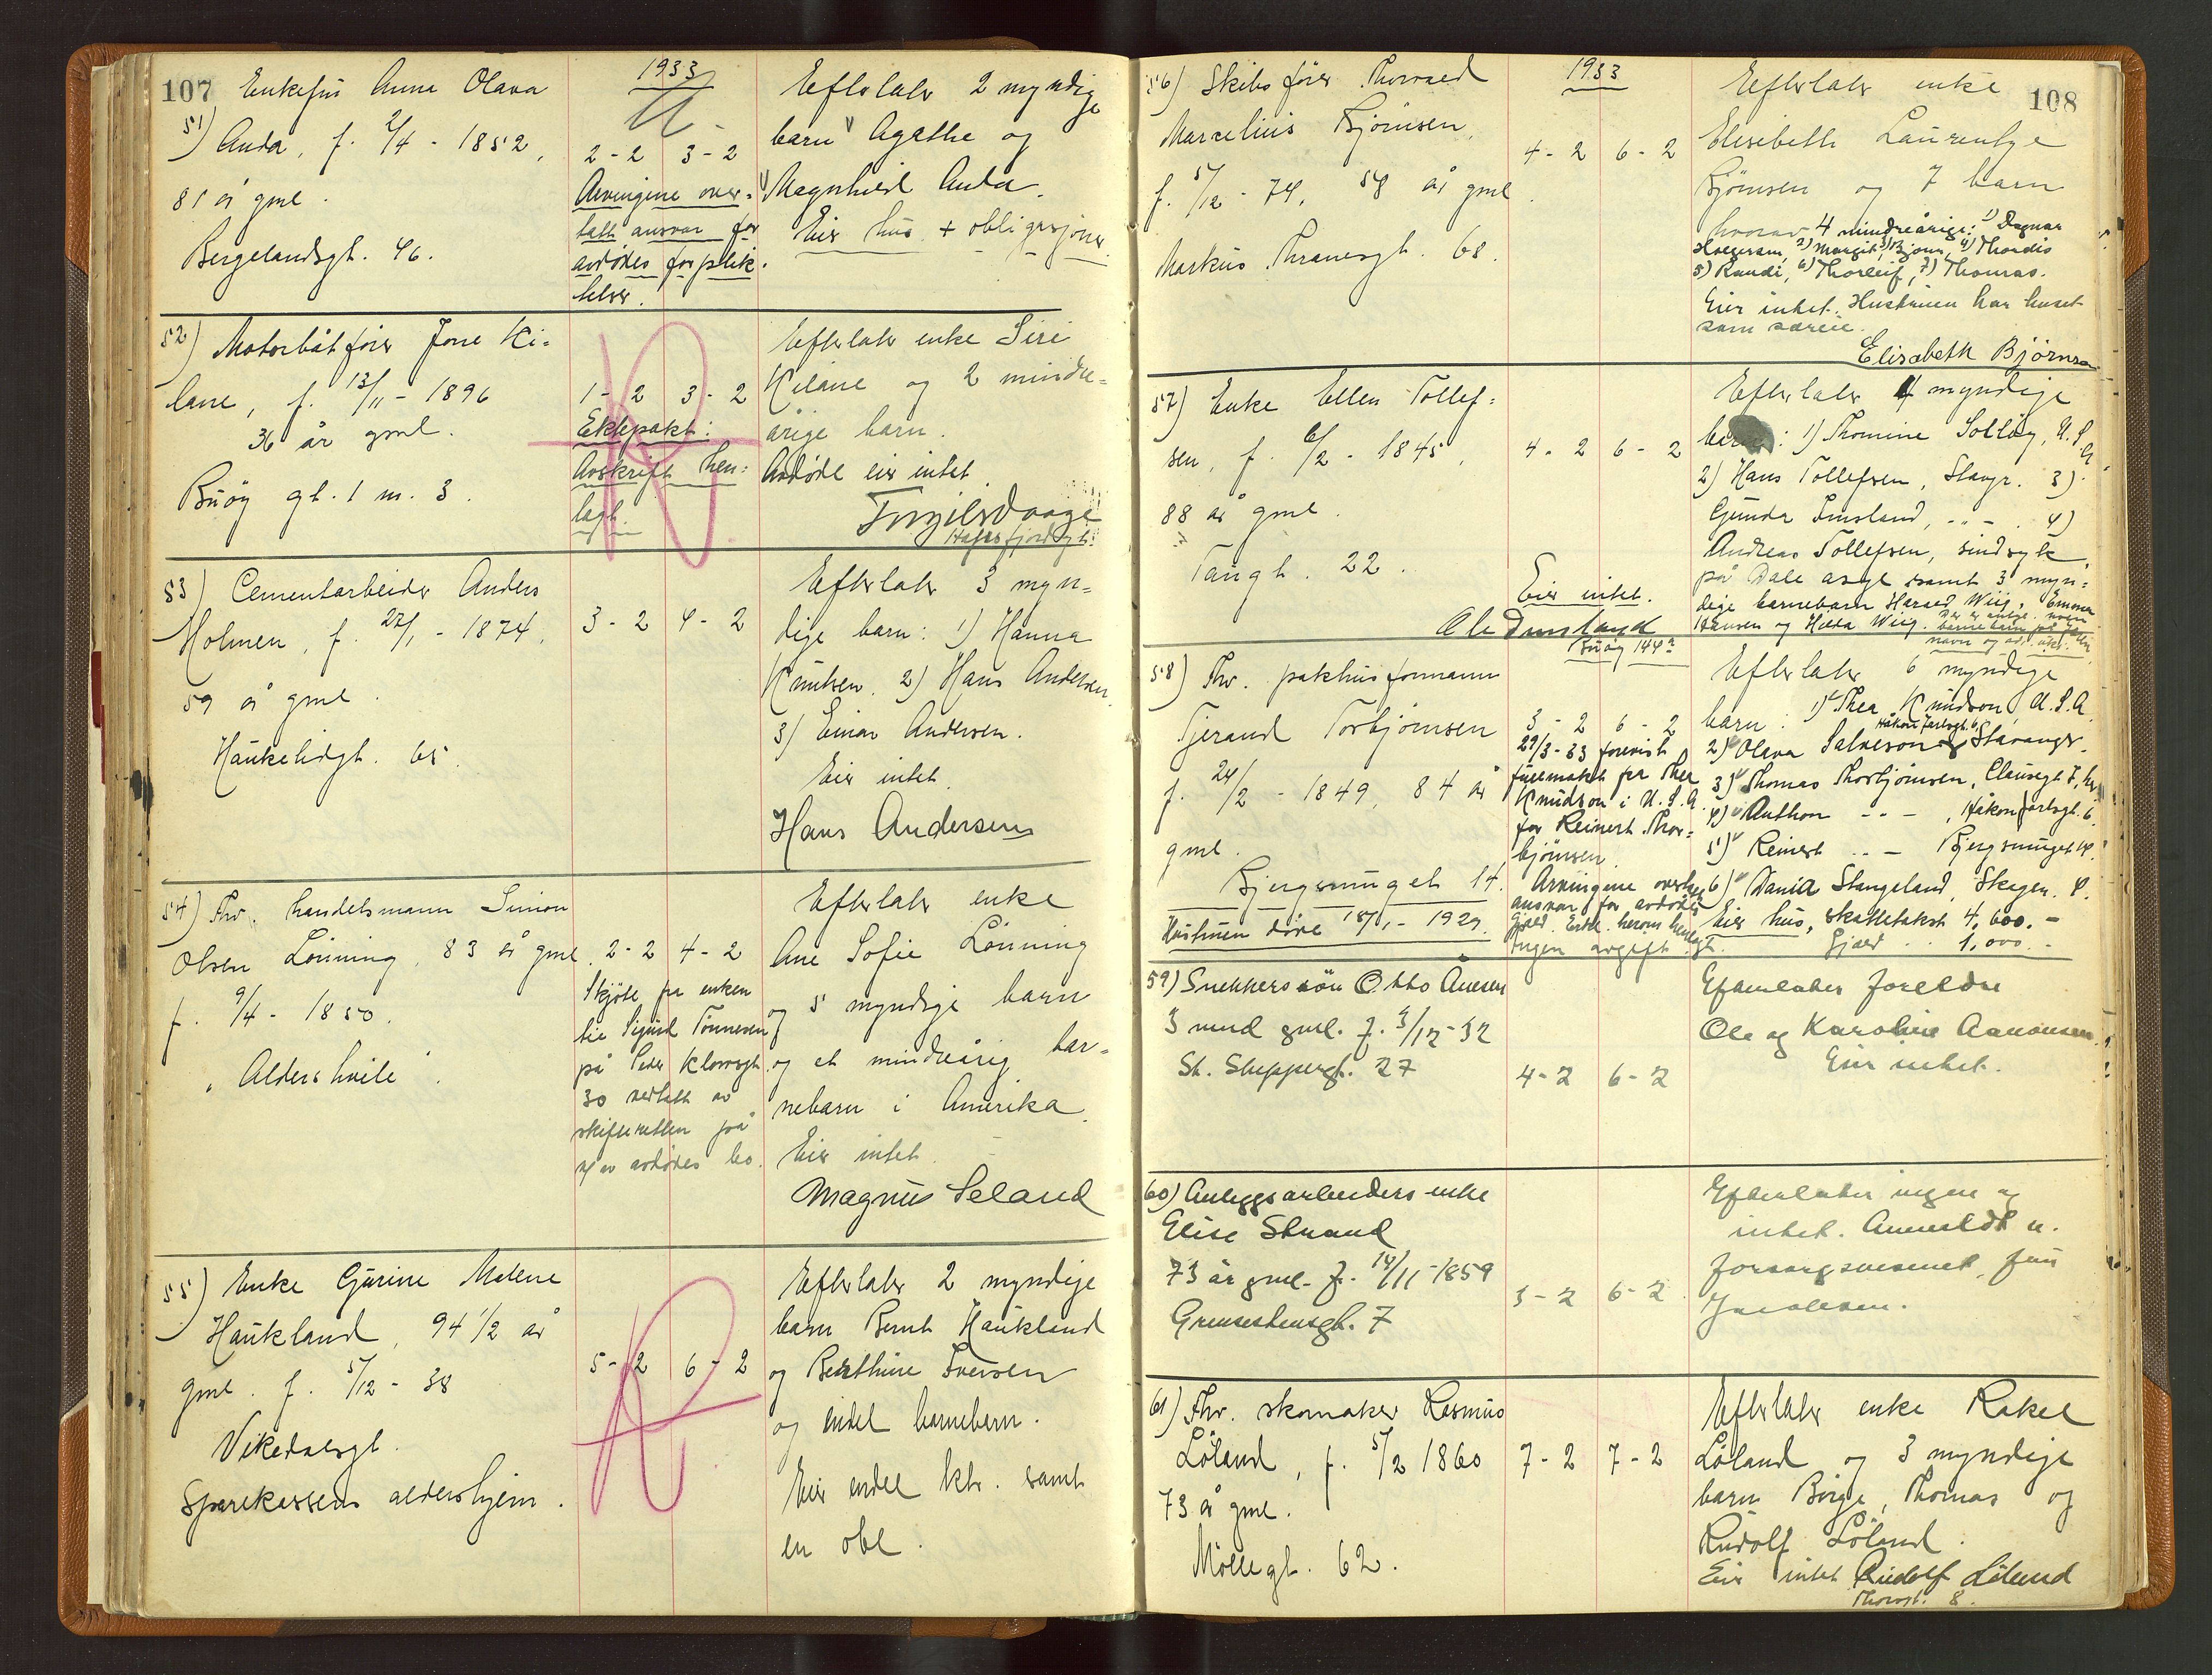 107
1933
51) Enkefru Anne Olava
Anda, f. 2/4 - 1852,
81 år gml.
Bergelandsgt. 46.
2-2 3-2
Arvingene over-
tatt ansvar for
avdødes forplik-
telser.
Efterlater 2 myndige
barn Agathe og
Magnhild Anda.
Eier hus + obligasjoner.
52) Motorbåtfører Jone Ki-
lane, f. 13/11 - 1896
36 år gml.
Buøy gt. 1 m. 3.
1-2 3-2
Ektepakt:
Avskrift hen-
lagt.
Efterlater enke Siri
Kilane og 2 mindre-
årige barn.
Avdøde eier intet.
Hafrsfjordgt.
53) Cementarbeider Anders
Holmen, f. 27/1 - 1874,
59 år gml.
Haukeligt. 65.
3-2 4-2
Efterlater 3 myn-
dige barn: 1) Hanna
Knutsen. 2) Hans Andersen
3) Einar Andersen.
Eier intet.
Hans Andersen
54) Fhv. handelsmann Simon
Olsen Lønning, 83 år gml.
f. 9/4 - 1850.
"Aldershvile".
2-2 4-2
Skjøte fra enken
til Sigurd Tønnesen
på Peder Klowsgt.
30 vedtatt av
skifteretten på
av avdødes bo.
Efterlater enke
Ane Sofie Lønning
og 5 myndige barn
og et mindreårig bar-
nebarn i Amerika.
Eier intet.
Magnus Seland
55) Enke Gjurine Malene
Haukland, 94 1/2 år
gml. f. 5/12 - 38
Vikedalsgt.
Sparekassens aldershjem.
5-2 6-2
Efterlater 2 myndige
barn Bernt Haukland
og Berthine Iversen
og endel barnebarn.
Eier endel ktr. samt
en obl.
108
1933
56) Skibsfører Thorvald
Marcelius Bjørnsen,
f. 5/12 - 74, 58 år gml.
Markus Thranesgt. 68.
4-2 6-2
Efterlater enke
Elisabeth Laurentze
Bjørnsen og 7 barn
hvorav 4 mindreårige: 1) Dagmar
2) Margit, 3) Bjørn, 4) Thordis
5) Randi, 6) Thorleif, 7) Thomas.
Eier intet. Hustruen har huset
som særeie.
Elisabeth Bjørnsen
57) Enke Ellen Tollef-
sen, f. 6/2 - 1845,
88 år gml.
Taugt. 22.
4-2 6-2
Eier intet.
Efterlater 4 myndige
barn: 1) Thomine Solløy, U.S.A.
2) Hans Tollefsen, Stavgr. 3)
Gunda Imsland, -"-. 4)
Andreas Tollefsen, sindsyk
på Dale asyl samt 3 myn-
dige barnebarn Harald Wiig, Emma
Hansen og Hilda Wiig.
Ole Imsland
Buøy 144
58) Fhv. pakhusformann
Tjerand Torbjørnsen
f. 24/2 - 1849, 84 år
gml.
Bjergsmuget 14.
Hustruen døde 18/1 - 1929.
3-2 6-2
29/3-33 forevist
fullmakt fra Thea
Knudson i U.S.A.
for Reinert Thor-
bjørnsen.
Arvingene overtar
ansvar for avdødes
gjeld. Erkl. herom henlagt.
Ingen avgift.
Efterlater 6 myndige
barn: 1) Thea Knudson, U.S.A.
Håkon Jarlsgt. 6
2) Olava Salveson, Stavanger.
3) Thomas Thorbjørnsen, Clausegt. 7, her
4) Anthon -"-, Håkon Jarlsgt. 6.
5) Reinert -"- Bjergsmuget 14.
6) Dania Stangeland, Skagen. 4.
Eier hus, skattetakst 4,600.-
Gjeld 1,000.-
59) Snekkers søn Otto Anesen
3 mnd gml. f. 3/12-32
St. Skippergt. 27
4-2 6-2
Efterlater foreldre
Ole og Karoline Aanonsen.
Eier intet.
60) Anleggsarbeiders enke
Elise Strand
73 år gml. f. 14/11-1859
Grensestensgt. 7
3-2 6-2
Efterlater ingen og
intet. Anmeldt v.
forsorgsvesenet, frn
Jacobsen.
61) Fhv. skomaker Rasmus
Løland, f. 5/2 1860
73 år gml.
Møllegt. 62.
7-2 7-2
Efterlater enke Rakel
Løland og 3 myndige
barn Børge, Thomas og
Rudolf Løland.
Eier intet Rudolf Løland
8.